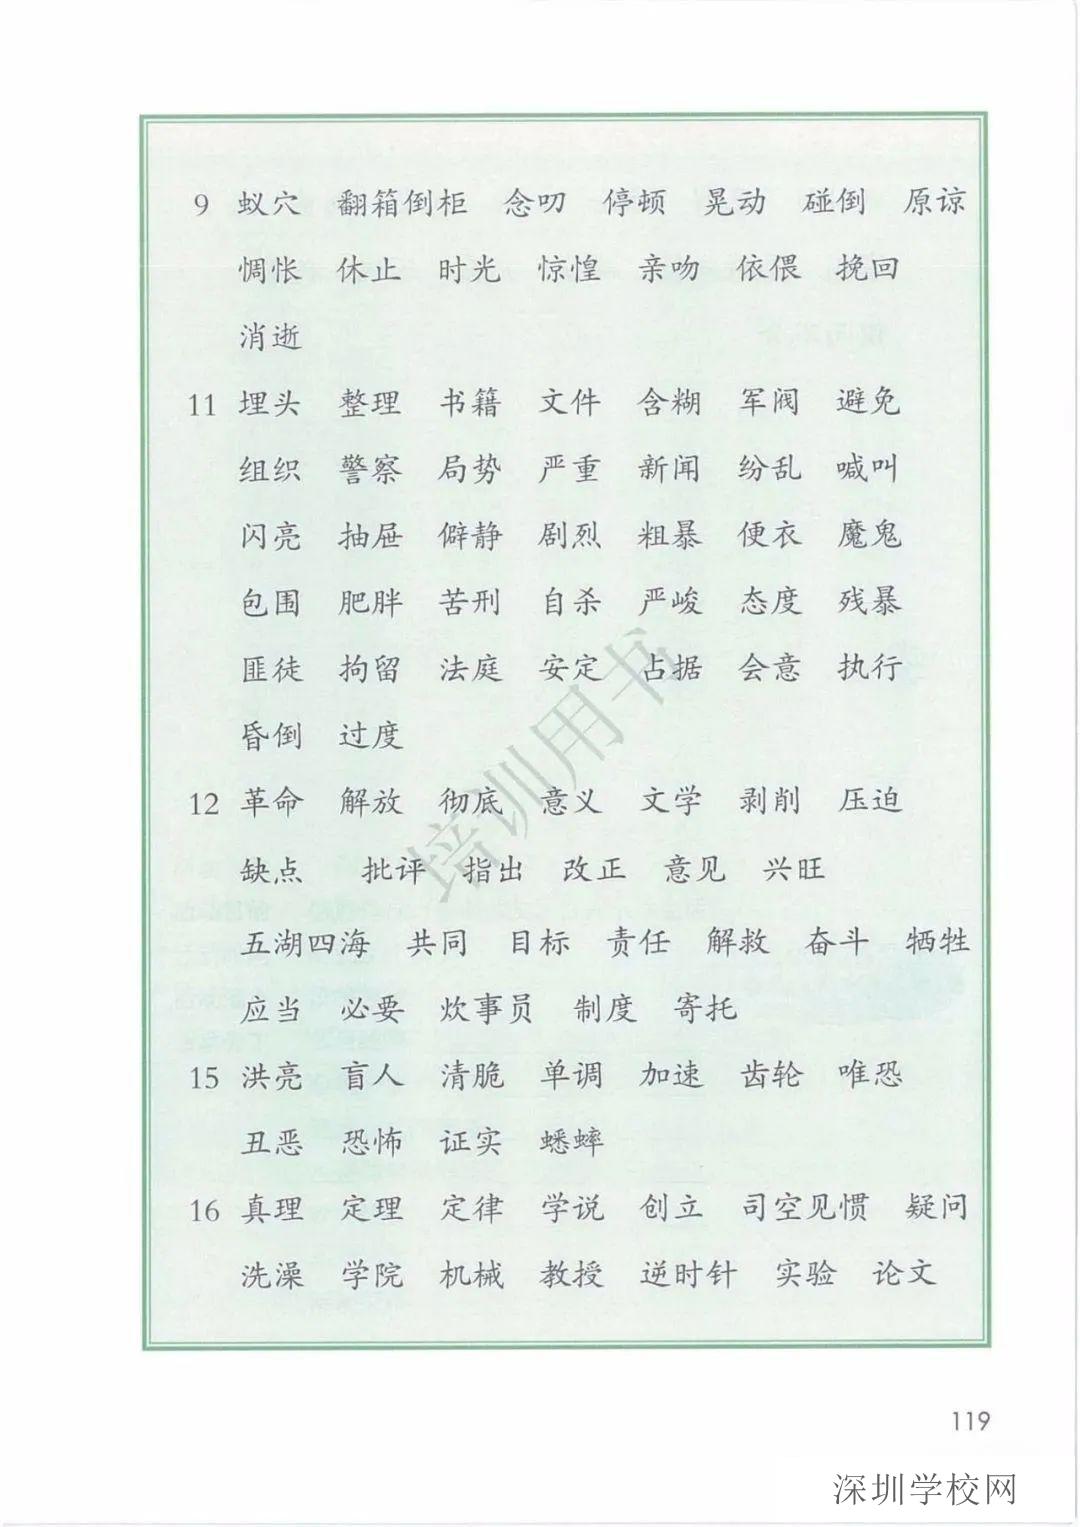 9 蚁穴 翻箱倒柜 念叨 停顿 晃动 碰倒 原谅
惆怅 休止 时光 惊惶 亲吻 依偎 挽回
消逝
11 埋头 整理 书籍 文件 含糊 军阀 避免
组织 警察 局势 严重 新闻 纷乱 喊叫
闪亮 抽屉 僻静 剧烈 粗暴 便衣 魔鬼
包围 肥胖 苦刑 自杀 严峻 态度 残暴
匪徒 拘留 法庭 安定 占据 会意 执行
昏倒 过度
12 革命 解放 彻底 意义 文学 剥削 压迫
缺点 批评 指出 改正 意见 兴旺
五湖四海 共同 目标 责任 解救 奋斗 牺牲
应当 必要 炊事员 制度 寄托
15 洪亮 盲人 清脆 单调 加速 齿轮 唯恐
丑恶 恐怖 证实 蟋蟀
16 真理 定理 定律 学说 创立 司空见惯 疑问
洗澡 学院 机械 教授 逆时针 实验 论文
培训用书
119
深圳学校网